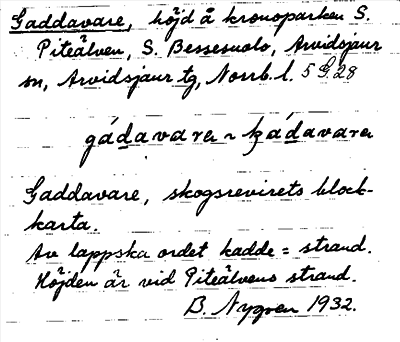 Gaddavare, höjd å kronoparken S.
Piteälven, S. Bessesuolo, Arvidsjaur
sn, Arvidsjaur tg, Norrb. l. 5 G. 28
gádavara ~ kádavara
Gaddavare, skogsrevirets block-
karta.
Av lappska ordet kadde = strand.
Höjden är vid Piteälvens strand.
B. Nygren 1932.